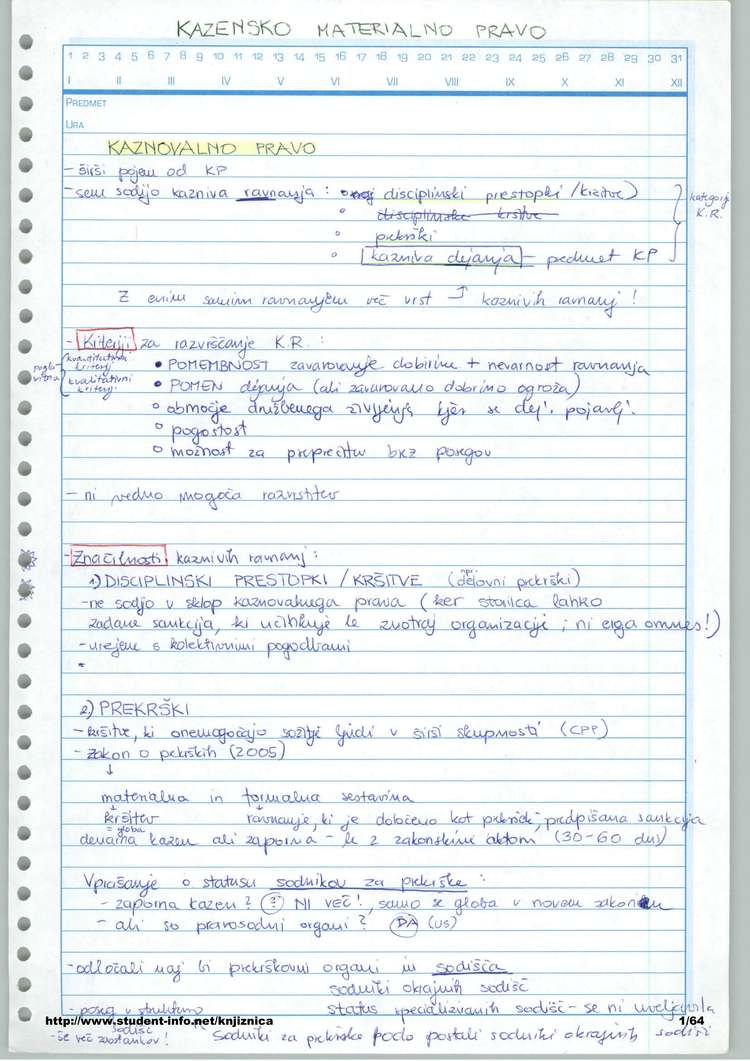 KAZENSKO MATERIALNO PRAVO
1 2 3 4 5 6 7 8 9 10 11 12 13 14 15 16 17 18 19 20 21 22 23 24 25 26 27 28 29 30 31
I II III IV V VI VII VIII IX X XI XII
PREDMET
URA
KAZNOVALNO PRAVO
- širši pojem od KP
- sem sodijo kazniva ravnanja : disciplinski prestopki /kršitve)
kategorije K.R.
disciplinske kršitve
prekrški
kazniva dejanja - predmet KP
Z enim samim ravnanjem več vrst kaznivih ravnanj !
- Kriteriji za razvrščanje K.R. :
kvantitativni kriterij
• POMEMBNOST zavarovanje dobrine + nevarnost ravnanja
kvalitativni kriterij
• POMEN dejanja (ali zavarovano dobrino ogroža)
° območje družbenega življenja kjer se dej. pojavlj.
° pogostost
° možnost za preprečitev brez posegov
- ni vedno mogoča razvrstitev
- Značilnosti kaznivih ravnanj :
1) DISCIPLINSKI PRESTOPKI / KRŠITVE (npr. delovni prekrški)
- ne sodijo v sklop kaznovalnega prava (ker storilca lahko
zadane sankcija, ki učinkuje le znotraj organizacije ; ni erga omnes!)
- urejene s kolektivnimi pogodbami
*
2) PREKRŠKI
- kršitve, ki onemogočajo sožitje ljudi v širši skupnosti (CPP)
- zakon o prekrških (2005)
↓
materialna in formalna sestavina
kršitev ravnanje, ki je določeno kot prekršek, predpisana sankcija
= globa
denarna kazen ali zaporna - le z zakonskim aktom (30-60 dni)
Vprašanje o statusu sodnikov za prekrške :
- zaporna kazen ? (?) NI VEČ!, samo še globa v novem zakonu
- ali so pravosodni organi ? DA (US)
- odločali naj bi prekrškovni organi in sodišča
sodniki okrajnih sodišč
- poseg v strukturo status specializiranih sodišč - se ni uveljavila
sodišč
http://www.student-info.net/knjiznica 1/64
- še več zaostankov! Sodniki za prekrške bodo postali sodniki okrajnih sodišč